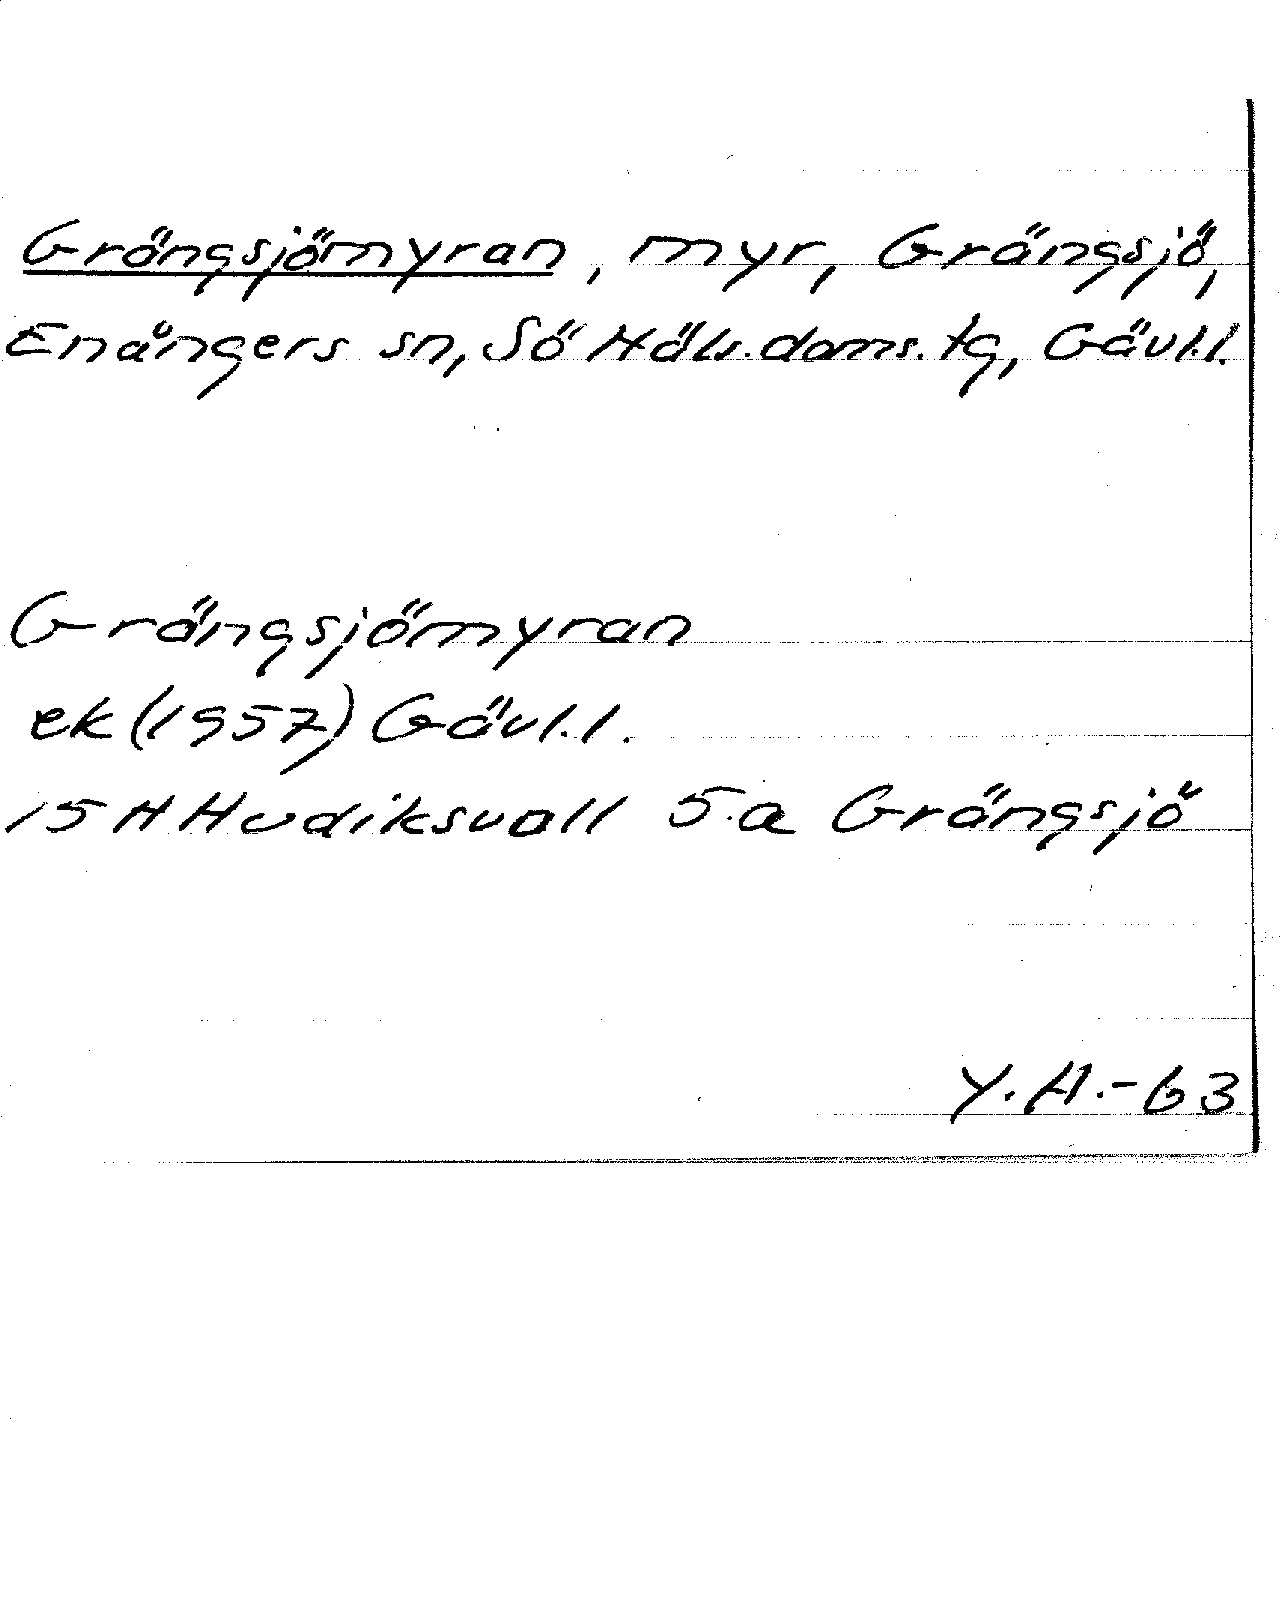 Grängsjömyran, myr, Grängsjö,
Enångers sn, Sö Häls. doms. tg, Gävl.l.
Grängsjömyran
ek (1957) Gävl.l.
15 H Hudiksvall 5 a Grängsjö
Y.H.-63